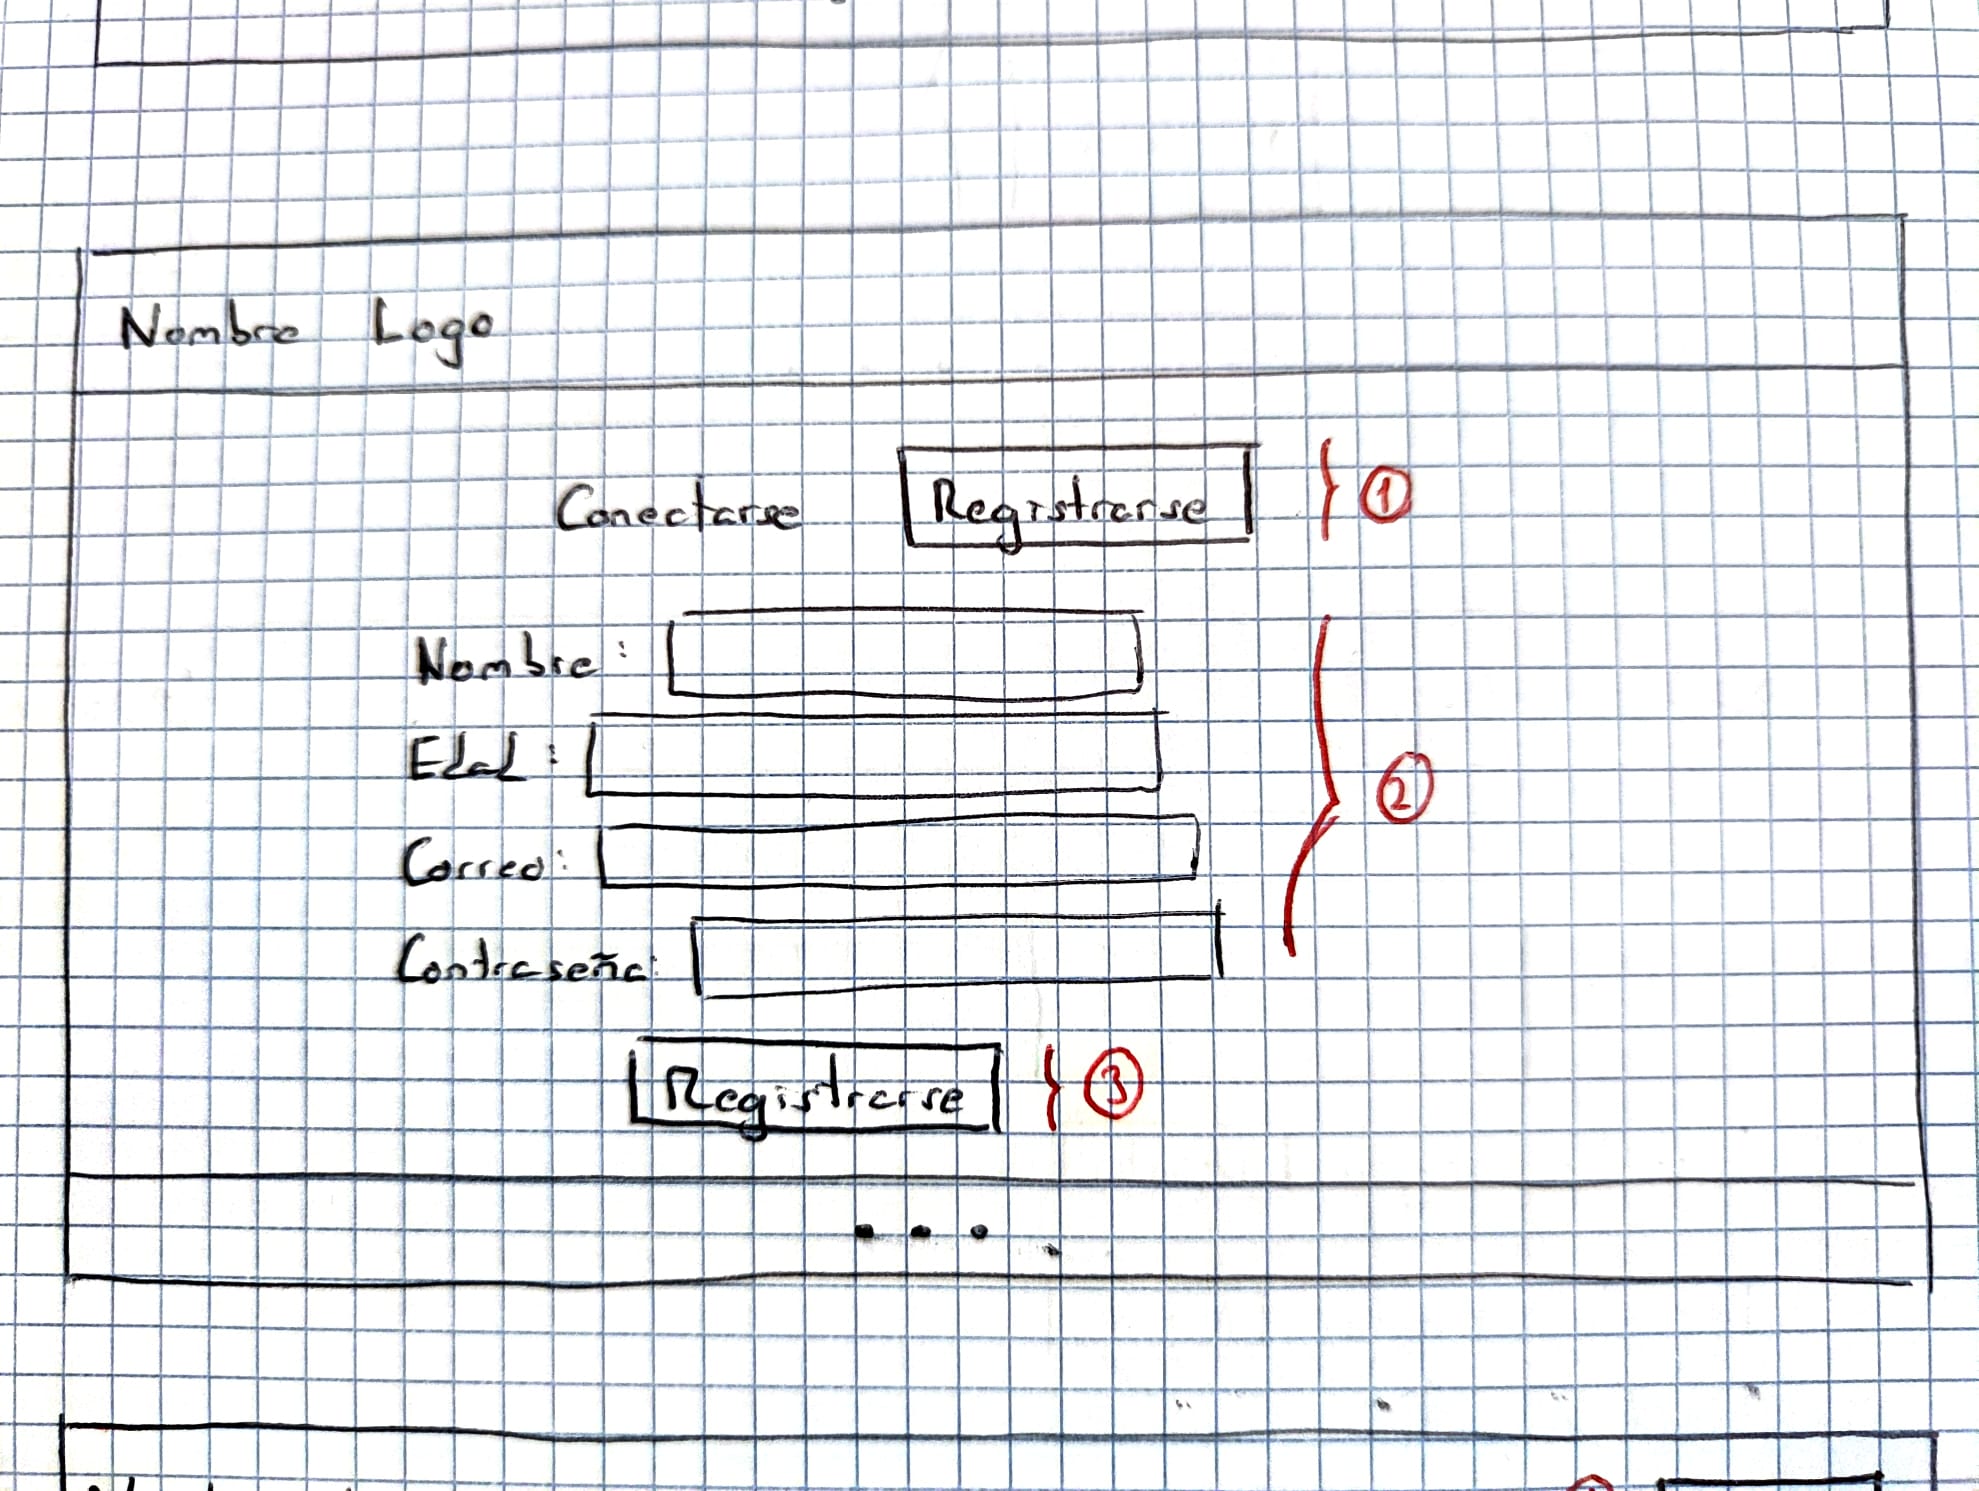 Nombre Logo
Conectarse Registrarse 1
Nombre:
Edad:
2
Correo:
Contraseña:
Registrarse 3
...